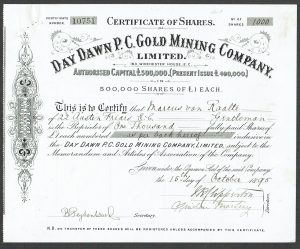 CERTIFICATE OF SHARES.
CERTIFICATE NUMBER 10751
No. OF SHARES 1000
DAY DAWN P.C. GOLD MINING COMPANY,
LIMITED.
AUTHORISED CAPITAL £500,000, (PRESENT ISSUE £480,000)
IN
500,000 SHARES OF £1 EACH.
This is to Certify that Marcus van Raalte
of 22 Austin Friars E.C. Gentleman
is the Proprietor of One Thousand fully paid Shares of
£1 each numbered as per back hereof inclusive in
the DAY DAWN P.C. GOLD MINING COMPANY, LIMITED, subject to the
Memorandum and Articles of Association of the Company.
Given under the Common Seal of the said Company
the 15 day of October 1895
Secretary.
N.B. NO TRANSFER OF THESE SHARES WILL BE REGISTERED UNLESS ACCOMPANIED BY THIS CERTIFICATE.